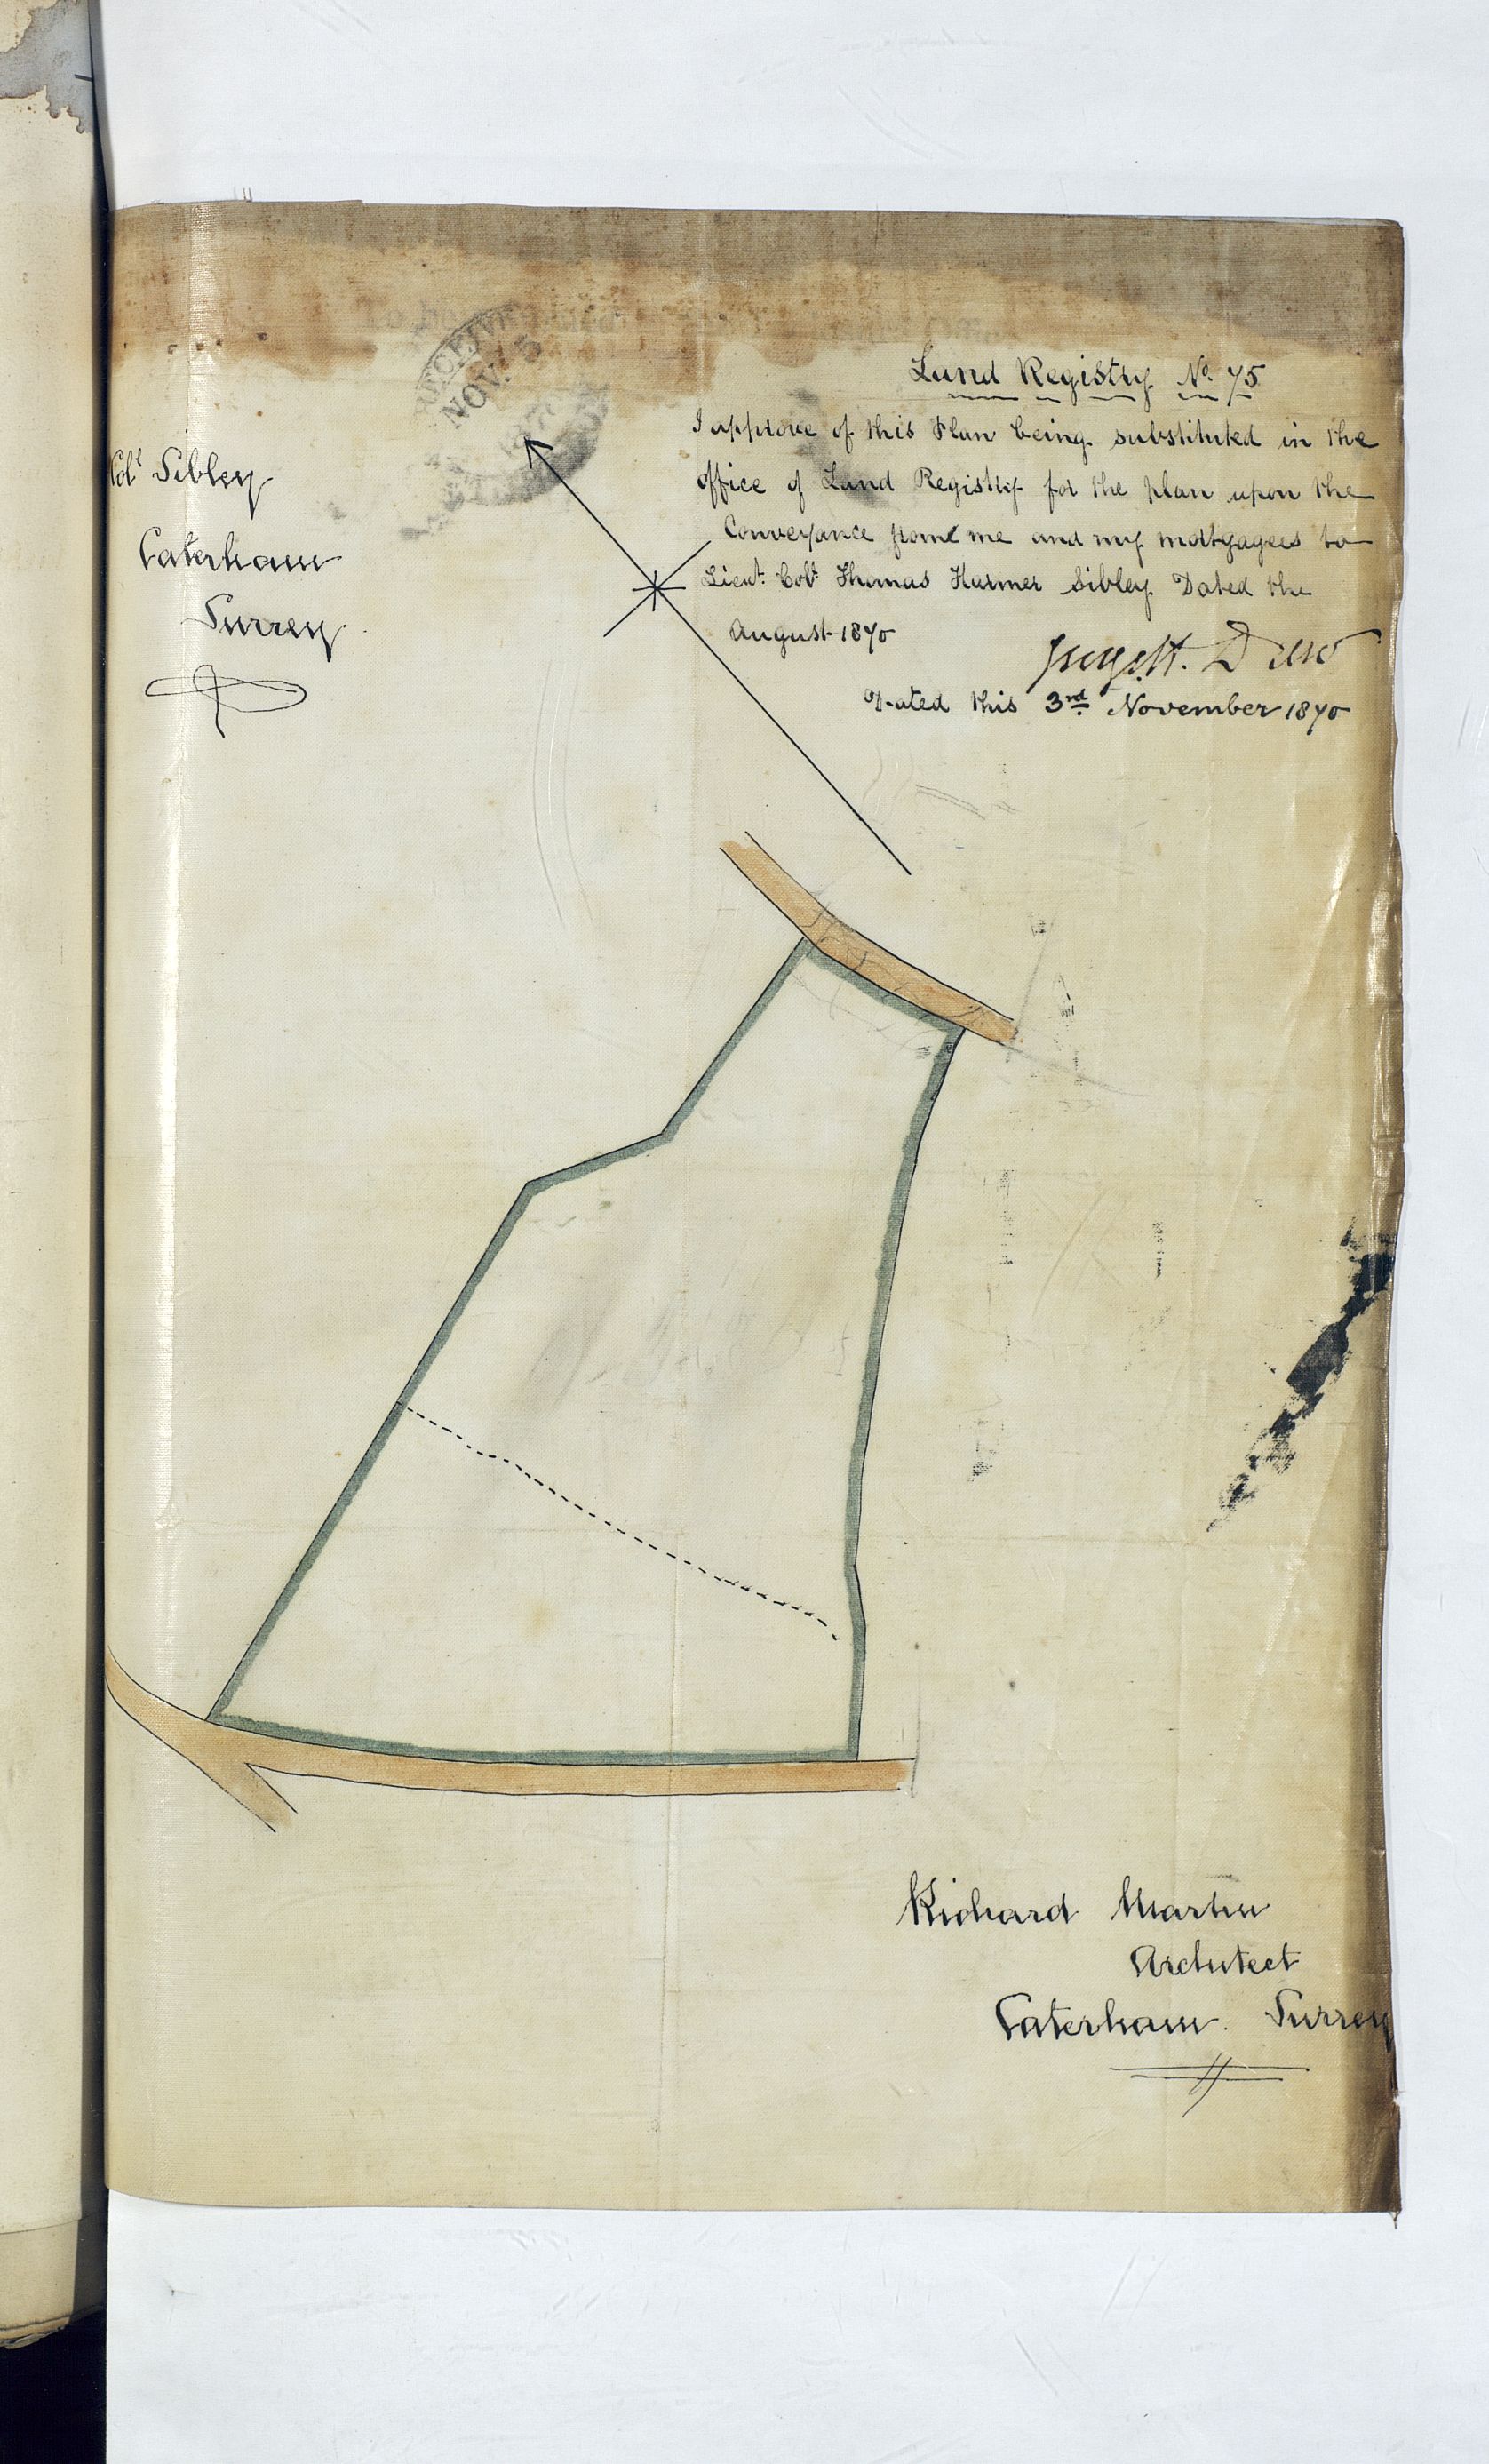 Land Registry No. 75
I approve of this Plan being substituted in the
office of Land Registry for the plan upon the
Conveyance from me and my mortgagees to
Lieut. Coll. Thomas Harmer Sibley Dated the
August 1870
Drew
Dated this 3rd November 1870
Coll. Sibley
Caterham
Surrey
RECEIVED
NOV. 5
1870
Richard Martin
Architect
Caterham. Surrey